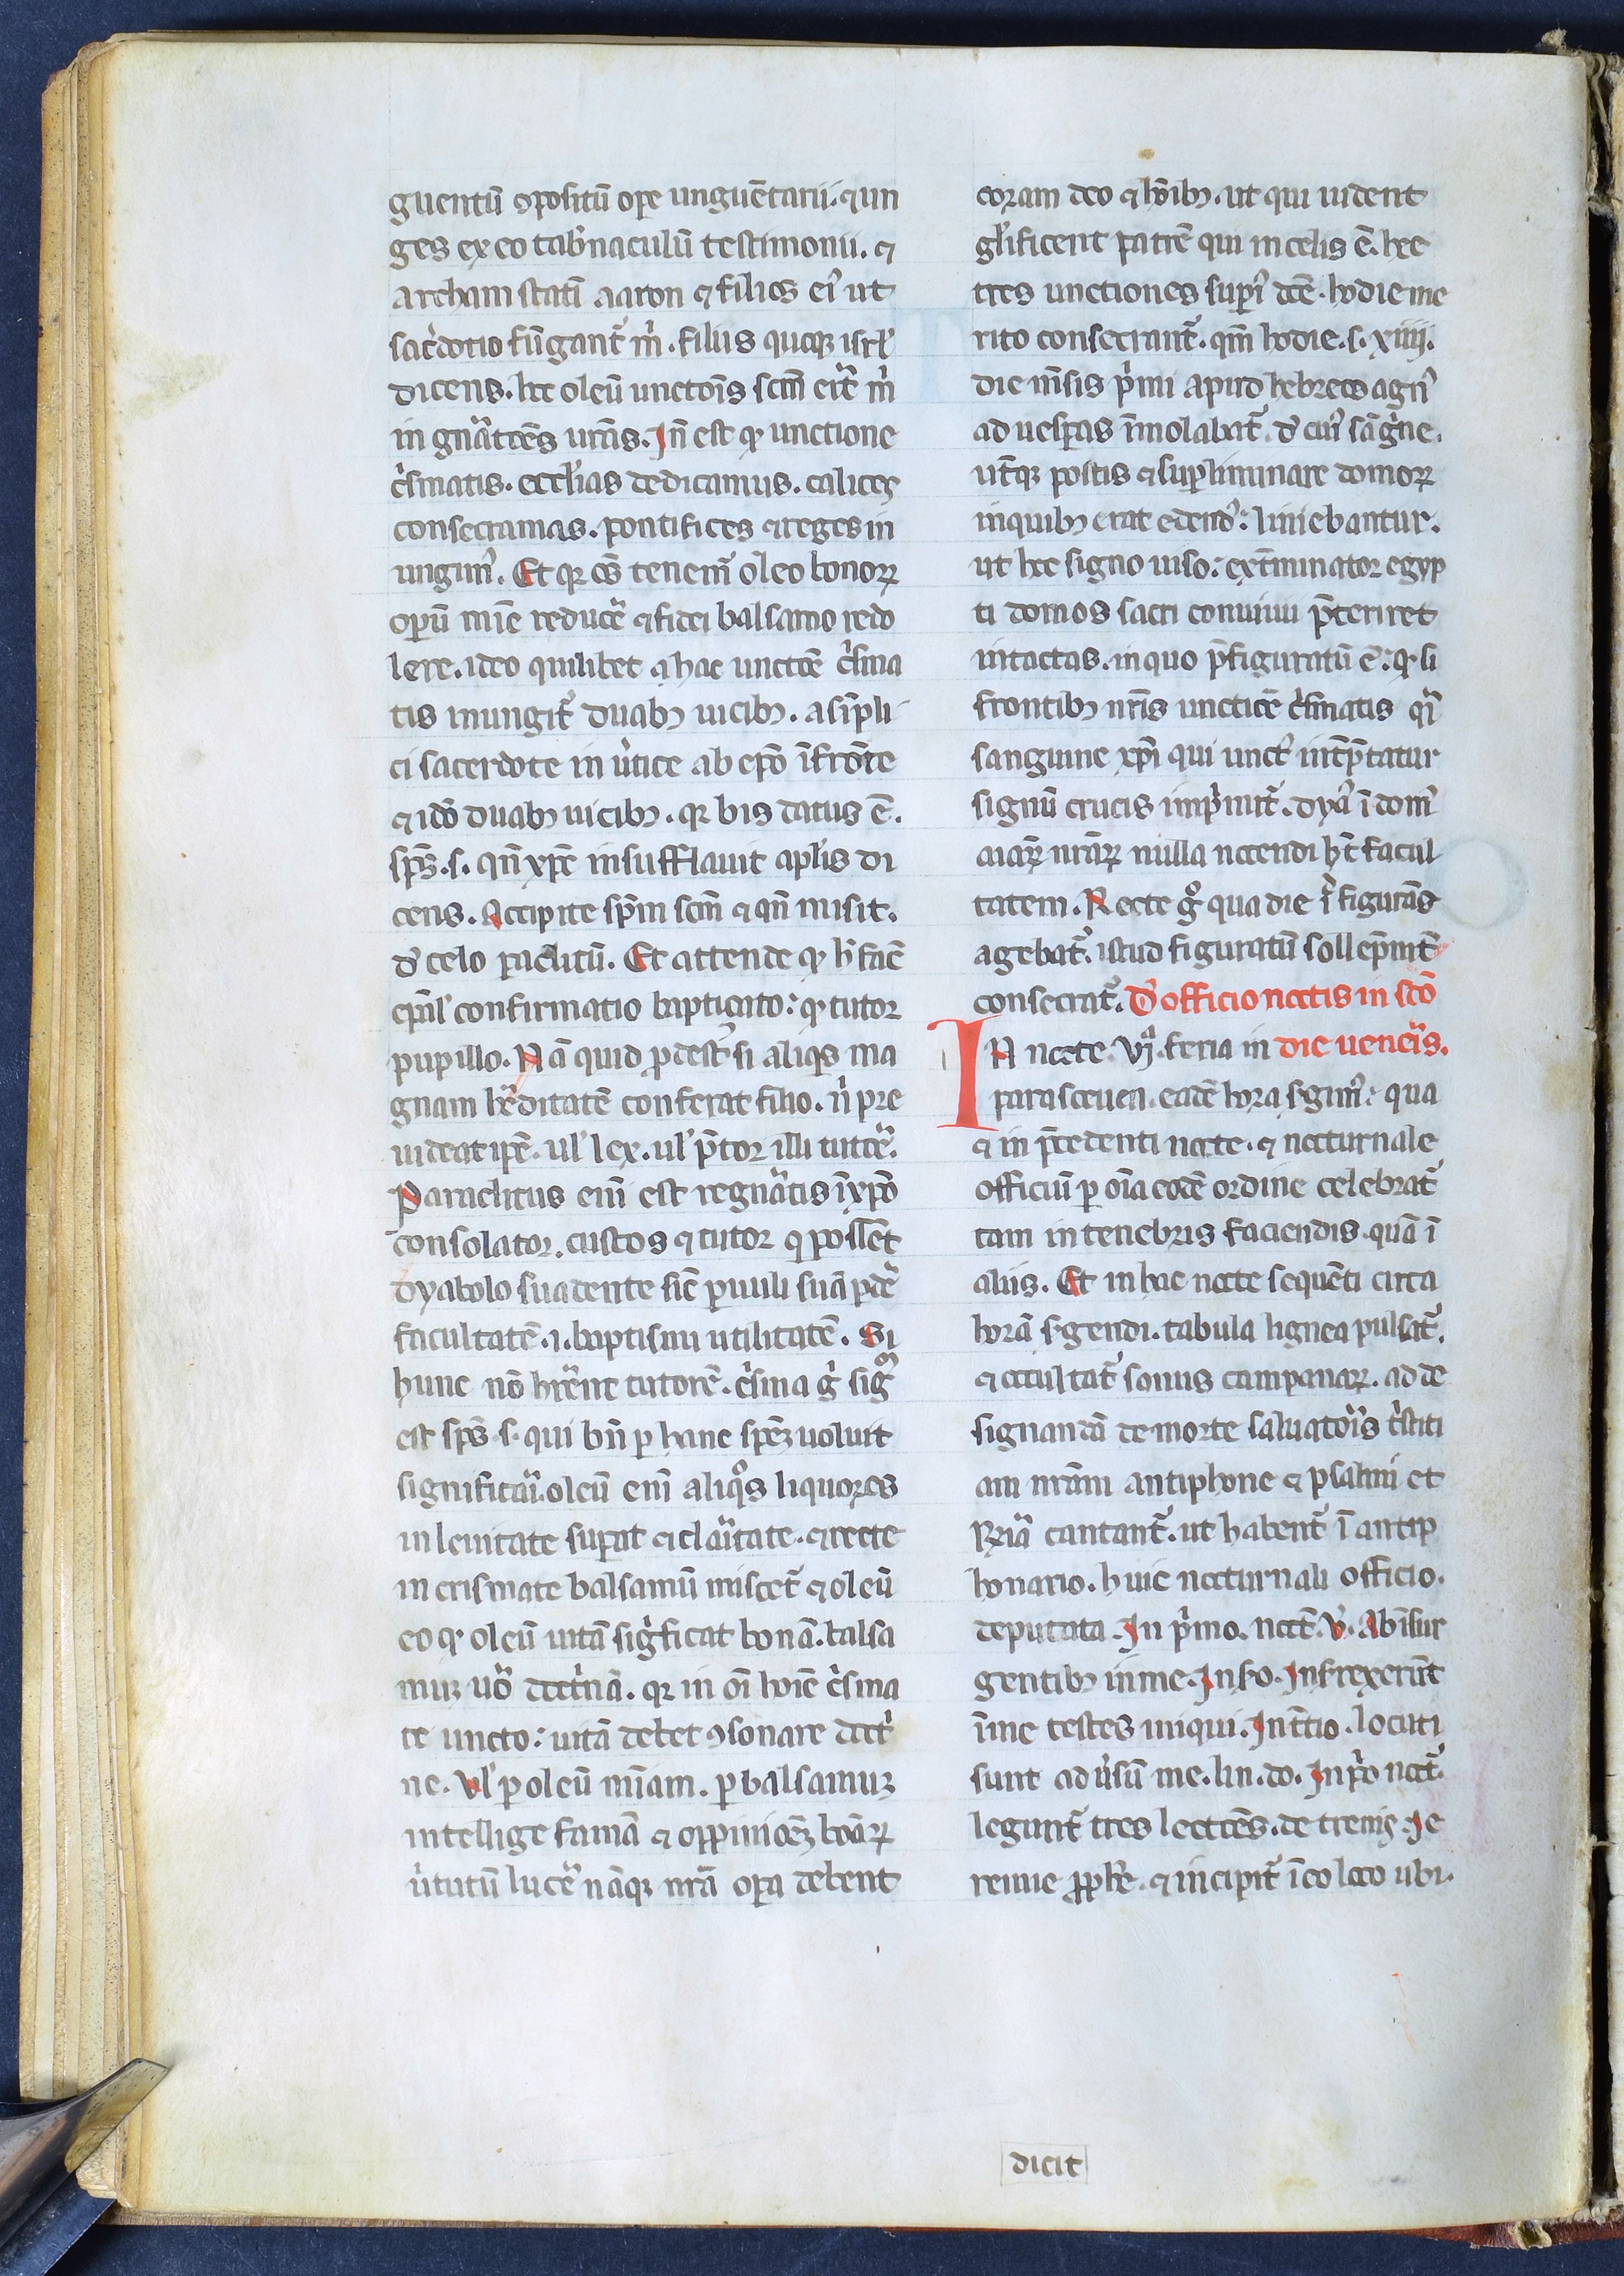 guentū ꝯpositū oꝑe unguētarii. ⁊ un
ges ex eo tab̓naculū testimonii. ⁊
archam statī aaron ⁊ filios eiꝰ ut
sac̓dotio fūgant᷑ m̓. filiis quoqꝫ isrl̓
dicens. hoc oleū unctōis scm̄ erit m̓
in gn̄atōēs uras. Jn̄ est ꝙ unctione
c̓smatis. eccl̓ias dedicamus. calices
consecramas. pontifices ⁊ reges in
ungimꝰ. Et qꝛ oēs tenemꝰ oleo bonoꝝ
oꝑū mīe reducē ⁊ fidei balsamo redo
lere. ideo quilibet ⁊ hac unctōe c̓sma
tis inungit᷑ duabꝫ uicibꝫ. a simpli
ci sacerdote in u̓tice ab ep̄o ī frōte
⁊ idō duabꝫ uicibꝫ. qꝛ bis datus ē.
sp̄s. s. qn̄ xp̄c insufflauit apl̓is di
cens. Accipite sp̄m scm̄ ⁊ qn̄ misit.
d̓ celo paraclitū. Et attende ꝙ h̓ facē
ep̄al̓ confirmatio baptizato: ꝙ tutor
pupillo. Nā quid ꝓdest si aliqͥs ma
gnam h̓editatē conferat filio. n̓ pre
uideat ip̄e. ul̓ lex. ul̓ p̄tor illi tutoē.
Paraclitus eni est regn̄atis ī xp̄o
consolator. custos ⁊ tutor q posset
dyabolo suadente sic̄ ꝑuuli suā ꝑdē
facultatē. i. baptismi utilitatē. Si
hunc nō hrēnt tutorē. c̓sma g̓ sigͦ
est sp̄s. s. qui bn̄ ꝑ hanc spēꝫ uoluit
significari. oleū eni aliqͦs liquores
in lenitate suꝑat ⁊ claritate. ⁊ recte
in crismate balsamū miscet᷑ ⁊ oleū
eo ꝙ oleū uitā significat bonā. balsa
muꝫ uō doct̓nā. qꝛ in oī hoīe c̓sma
te uncto: uitā debet ꝯsonare doct̓
ne. Vl̓ ꝑ oleū mīam. ꝑ balsamuꝫ
intellige famā ⁊ oppinioēꝫ bonaꝝ
u̓tutū lucē nāqꝫ nrā oꝑa debent
coram deo ⁊ hoībꝫ. ut qui uident
gl̓ificent patrē qui in celis ē. hee
tres unctiones supͥ dcē. hodie me
rito consecrant᷑. qm̄ hodie. s. xiiii.
die mēsis pͥmi apud hebreos agnꝰ
ad uesꝑas ī molabat᷑. d̓ cuiꝰ sāgͥne.
ut̄qꝫ postis ⁊ suꝑliminare domoꝝ
in quibꝫ erat edendꝰ: liniebantur.
ut hoc signo uiso: ext̄minator egyp
ti domos sacri conuiuii p̄teriret
intactas. in quo p̄figuratū ē: ꝙ si
frontibꝫ nris unctiōe c̓smatis qͣi
sanguine xp̄i qui unctꝰ int̄p̄tatur
signū crucis impͥmit᷑. dyaꝰ ī domꝰ
aiaꝝ nr̄aꝝ nulla nocendi hēt facul
tatem. Recte gͦ qua die ī figurās
agebat᷑. istud figuratū sollēpnit᷑
consecrat᷑. D̓ officio noctis in scō
IN nocte. vjͣ. feria in die uenēis.
parasceuen. eadē hora surgimꝰ: qua
⁊ in p̄cedenti nocte. ⁊ nocturnale
officiū ꝑ oīa eodē ordine celebrat᷑
tam in tenebris faciendis. quā ī
aliis. Et in hac nocte sequēti circa
horā s̓gendi. tabula lignea pulsat᷑.
⁊ occultat᷑ sonus campanaꝝ. ad de
signandā de morte saluatōis t̓stiti
am nrām antiphone ⁊ psalmi et
℟ria cantant᷑. ut habent᷑ ī antip
honario. huic nocturnali officio.
deputata. Jn pͥmo. noct̄. ℣. Ab īsur
gentibꝫ in me. Jn ẜo. Insrexerūt
ī me testes iniqui. Jn t̄tio. locuti
sunt adu̓sū me. lin. do. Jn pͥo noct᷑.
legunt᷑ tres lectōēs. de trenis. Je
remie ꝓph̄e. ⁊ incipit᷑ ī eo loco ubi.
dicit